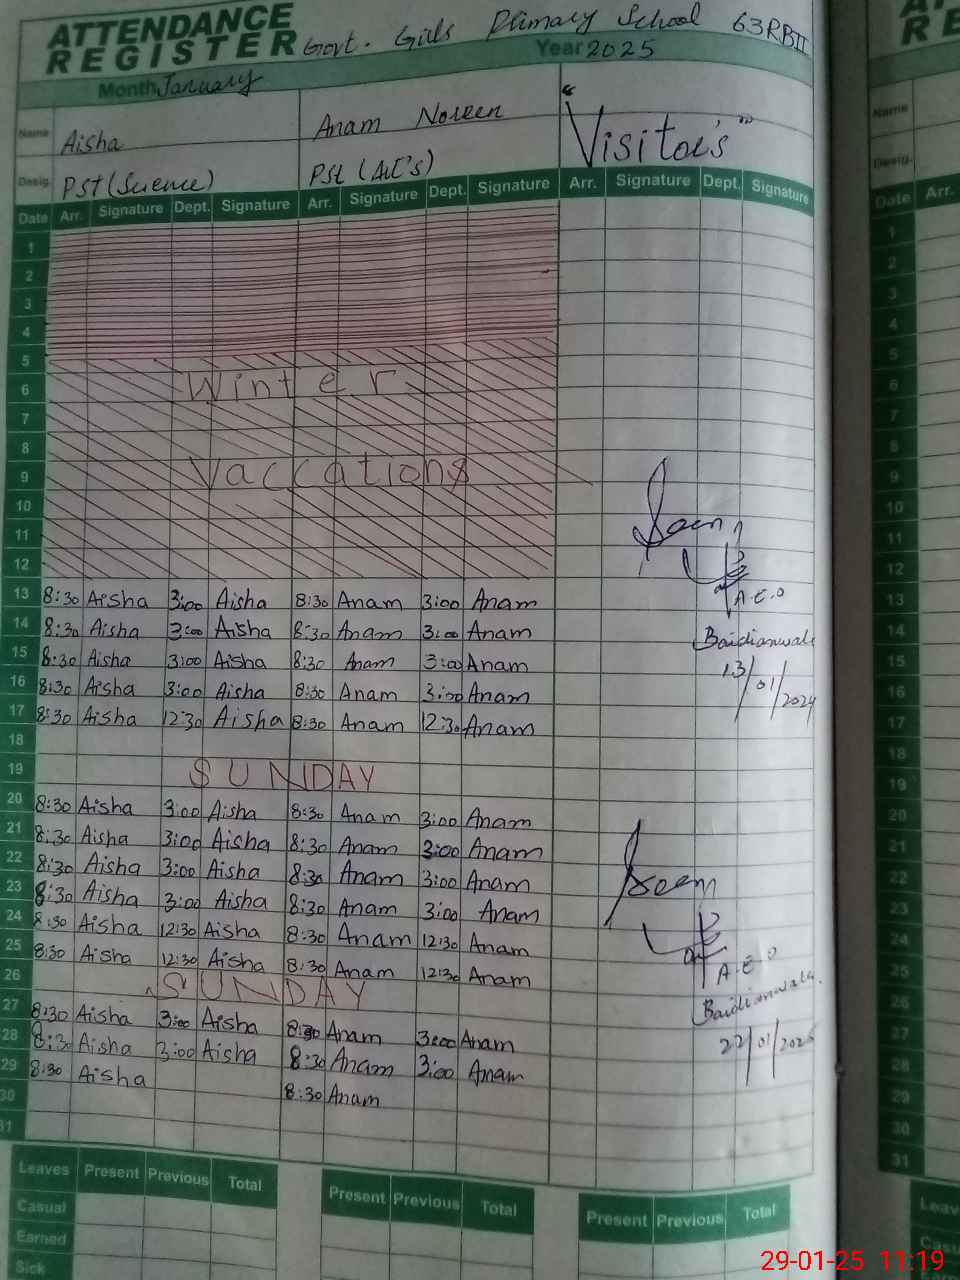 ATTENDANCE
REGISTER Govt. Girls Primary School 63RBII
Month January Year 2025
Name Aisha Anam Noreen "Visitor's"
Desig. PSt (Science) PSt (Art's)
Date Arr. Signature Dept. Signature Arr. Signature Dept. Signature Arr. Signature Dept. Signature
1
2
3
4
5
6 Winter
7
8
9 Vaccations
10
11 Seen
12
13 8:30 Aisha 3:00 Aisha 8:30 Anam 3:00 Anam A.E.O
14 8:30 Aisha 3:00 Aisha 8:30 Anam 3:00 Anam Baidianwala
15 8:30 Aisha 3:00 Aisha 8:30 Anam 3:00 Anam 13/01/2024
16 8:30 Aisha 3:00 Aisha 8:30 Anam 3:00 Anam
17 8:30 Aisha 12:30 Aisha 8:30 Anam 12:30 Anam
18
19 SUNDAY
20 8:30 Aisha 3:00 Aisha 8:30 Anam 3:00 Anam
21 8:30 Aisha 3:00 Aisha 8:30 Anam 3:00 Anam
22 8:30 Aisha 3:00 Aisha 8:30 Anam 3:00 Anam Seen
23 8:30 Aisha 3:00 Aisha 8:30 Anam 3:00 Anam
24 8:30 Aisha 12:30 Aisha 8:30 Anam 12:30 Anam
25 8:30 Aisha 12:30 Aisha 8:30 Anam 12:30 Anam A.E.O
26 SUNDAY Baidianwala.
27 8:30 Aisha 3:00 Aisha 8:30 Anam 3:00 Anam 22/01/2025
28 8:30 Aisha 3:00 Aisha 8:30 Anam 3:00 Anam
29 8:30 Aisha 8:30 Anam
30
31
Leaves Present Previous Total Present Previous Total Present Previous Total
Casual
Earned
Sick
Name
Desig.
Date Arr.
1
2
3
4
5
6
7
8
9
10
11
12
13
14
15
16
17
18
19
20
21
22
23
24
25
26
27
28
29
30
31
29-01-25 11:19